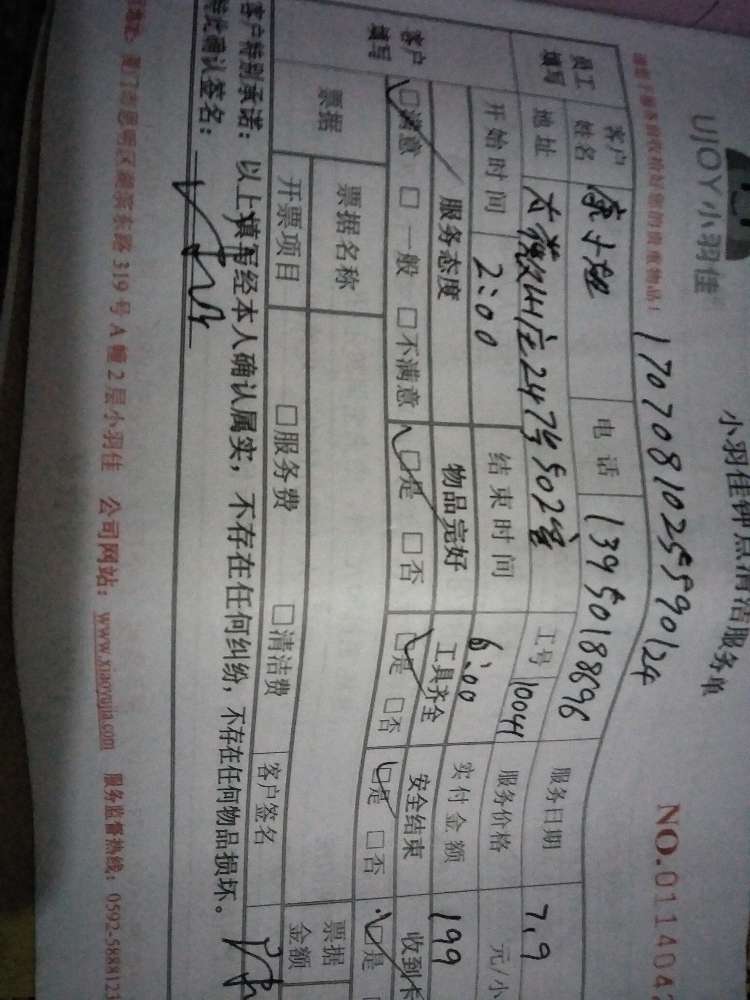 UJOY小羽佳
小羽佳钟点清洁服务单
NO.011404
17070810255590124
员工填写 客户姓名 电话 13950188696 服务日期 7.9
地址 工号 10041 服务价格 元/小
开始时间 2:00 结束时间 6:00 实付金额 199
客户填写 服务态度 物品完好 工具齐全 安全结束 收到卡
☑满意 □一般 □不满意 ☑是 □否 ☑是 □否 ☑是 □否 ☑是
票据 票据名称 票据金额
开票项目 □服务费 □清洁费 客户签名
客户特别承诺：以上填写经本人确认属实，不存在任何纠纷，不存在任何物品损坏。
特此确认签名：
厦门市思明区湖滨东路319号A幢2层小羽佳 公司网站：www.xiaoyujia.com 服务监督热线：0592-5888123